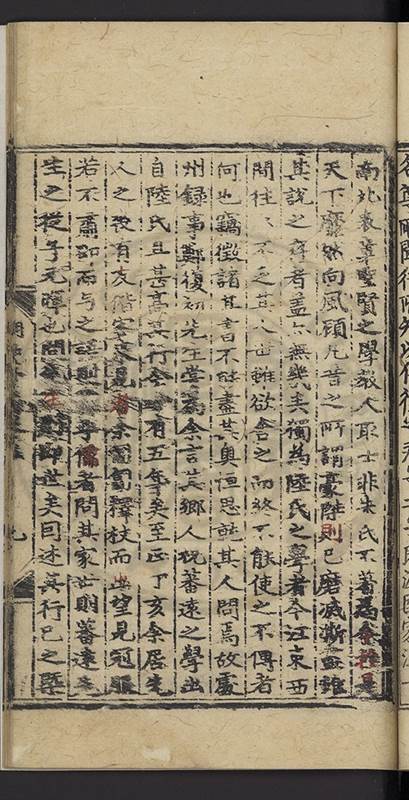 南北表章聖賢之學教人取士非朱氏不著為令於是
天下靡然向風顧凡昔之所謂豪傑則已磨滅澌盡雖
其說之存者蓋亦無幾矣獨為陸氏之學者今江東西
間往往不乏其人世雖欲舍之而終不能使之不傳者
何也竊徵諸其書不能盡其奧恒思就其人問焉故處
州錄事鄭復初先生嘗為余言其鄉人祝蕃遠之學出
自陸氏且甚高其行余有五年矣至正丁亥余居先
人之喪有友偕客來見者余匍匐釋杖而出望見冠服
若不肅即而与之語則乎儒者問其家世則蕃遠先
生之從子元暉也問先生則即世矣曰述其行已之槩